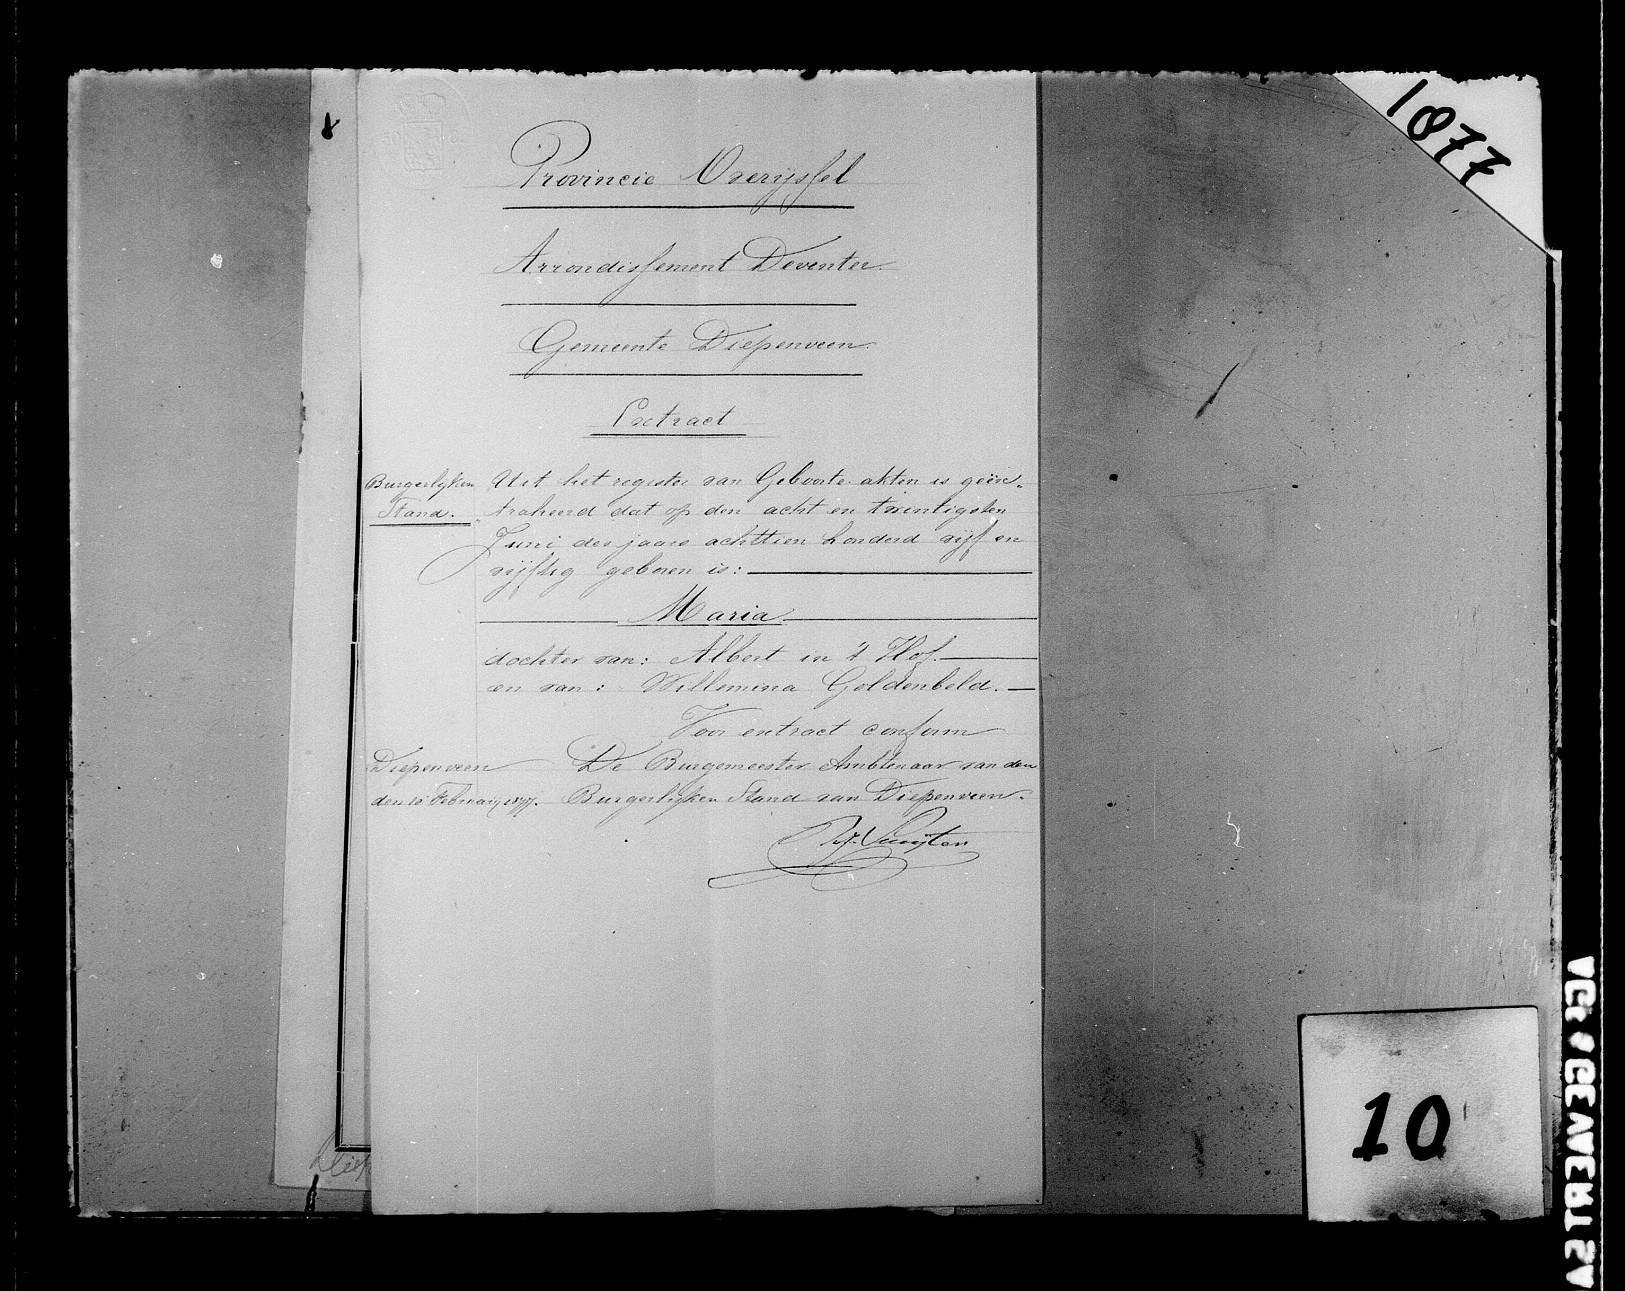 1877
8
Provincie Overijssel
Arrondissement Deventer
Gemeente Diepenveen
Extract
Burgerlijken
Stand.
Uit het register van Geboorte akten is geëx-
traheerd dat op den acht en twintigsten
Juni des jaars achttien honderd vijf en
vijftig geboren is:
Maria
dochter van: Albert in 't Hof.
en van: Willemina Goldenbeld.
Voor extract conform
Diepenveen De Burgemeester Ambtenaar van den
den 10 Februarij 1877. Burgerlijken Stand van Diepenveen.
Diep
10